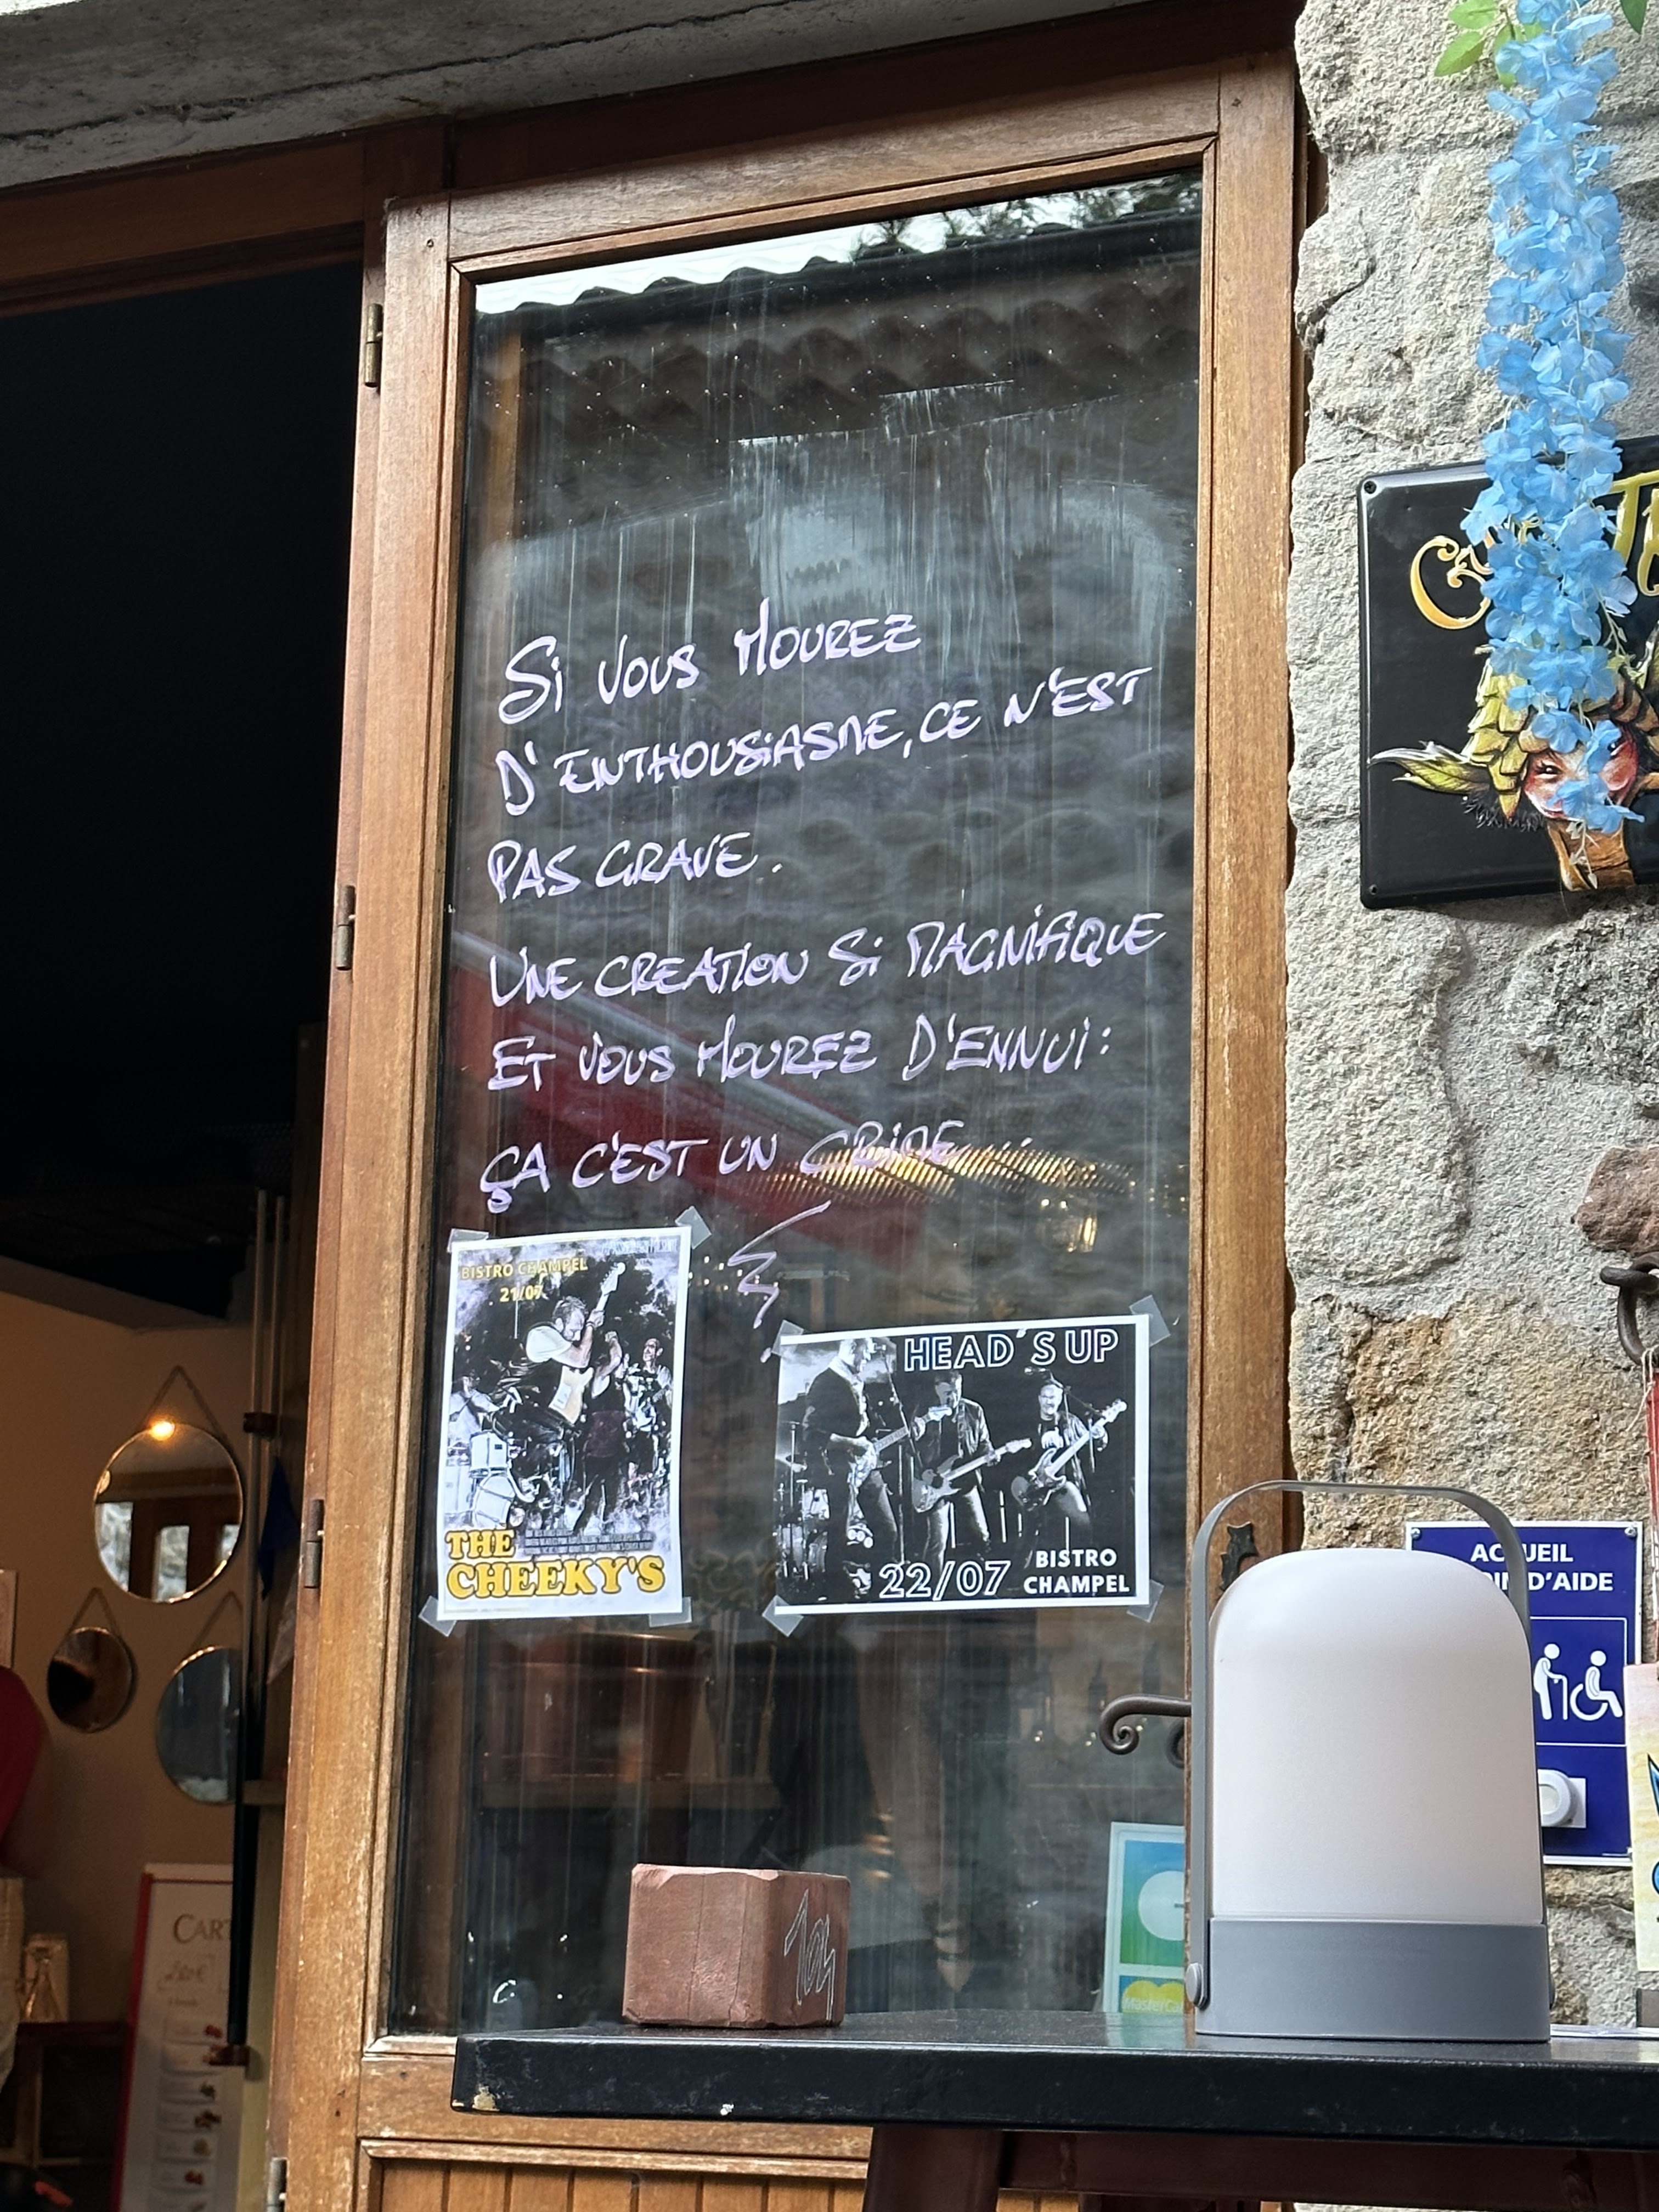 Si VOUS MOUREZ
D'ENTHOUSIASME, CE N'EST
PAS GRAVE.
UNE CREATION Si MAGNIFIQUE
ET VOUS MOUREZ D'ENNUI :
ÇA C'EST UN CRIME...
BISTRO CHAMPEL
21/07
THE
CHEEKY'S
HEAD´S UP
22/07
BISTRO
CHAMPEL
D'AIDE
104
MasterCa